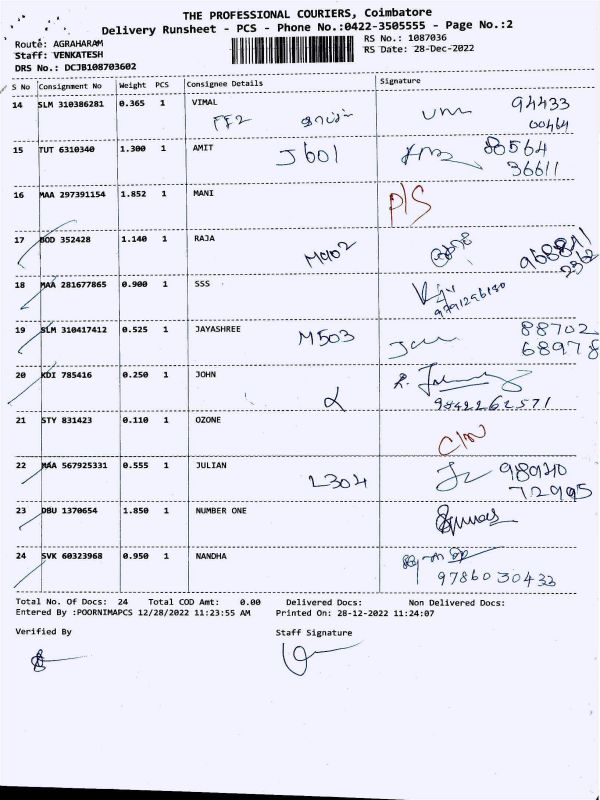 THE PROFESSIONAL COURIERS, Coimbatore
Delivery Runsheet - PCS - Phone No.:0422-3505555 - Page No.:2
Route: AGRAHARAM
RS No.: 1087036
Staff: VENKATESH
RS Date: 28-Dec-2022
DRS No.: DCJB108703602
S No Consignment No Weight PCS Consignee Details Signature
14 SLM 310386281 0.365 1 VIMAL 94433
FF2 00464
15 TUT 6310340 1.300 1 AMIT J601 88564
36611
16 MAA 297391154 1.852 1 MANI P/S
17 BOD 352428 1.140 1 RAJA
M902
18 MAA 281677865 0.900 1 SSS
9791296190
19 SLM 310417412 0.525 1 JAYASHREE M503 88702
68978
20 KDI 785416 0.250 1 JOHN
9842262571
21 STY 831423 0.110 1 OZONE
C/N
22 MAA 567925331 0.555 1 JULIAN
L304 72995
23 DBU 1370654 1.850 1 NUMBER ONE
24 SVK 60323968 0.950 1 NANDHA
97860 30433
Total No. Of Docs: 24 Total COD Amt: 0.00 Delivered Docs: Non Delivered Docs:
Entered By :POORNIMAPCS 12/28/2022 11:23:55 AM Printed On: 28-12-2022 11:24:07
Verified By Staff Signature